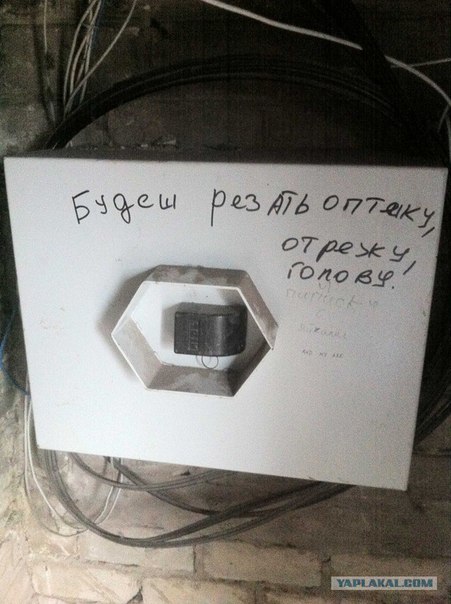 Будеш резать оптеку,
отрежу,
голову.
YAPLAKAL.COM